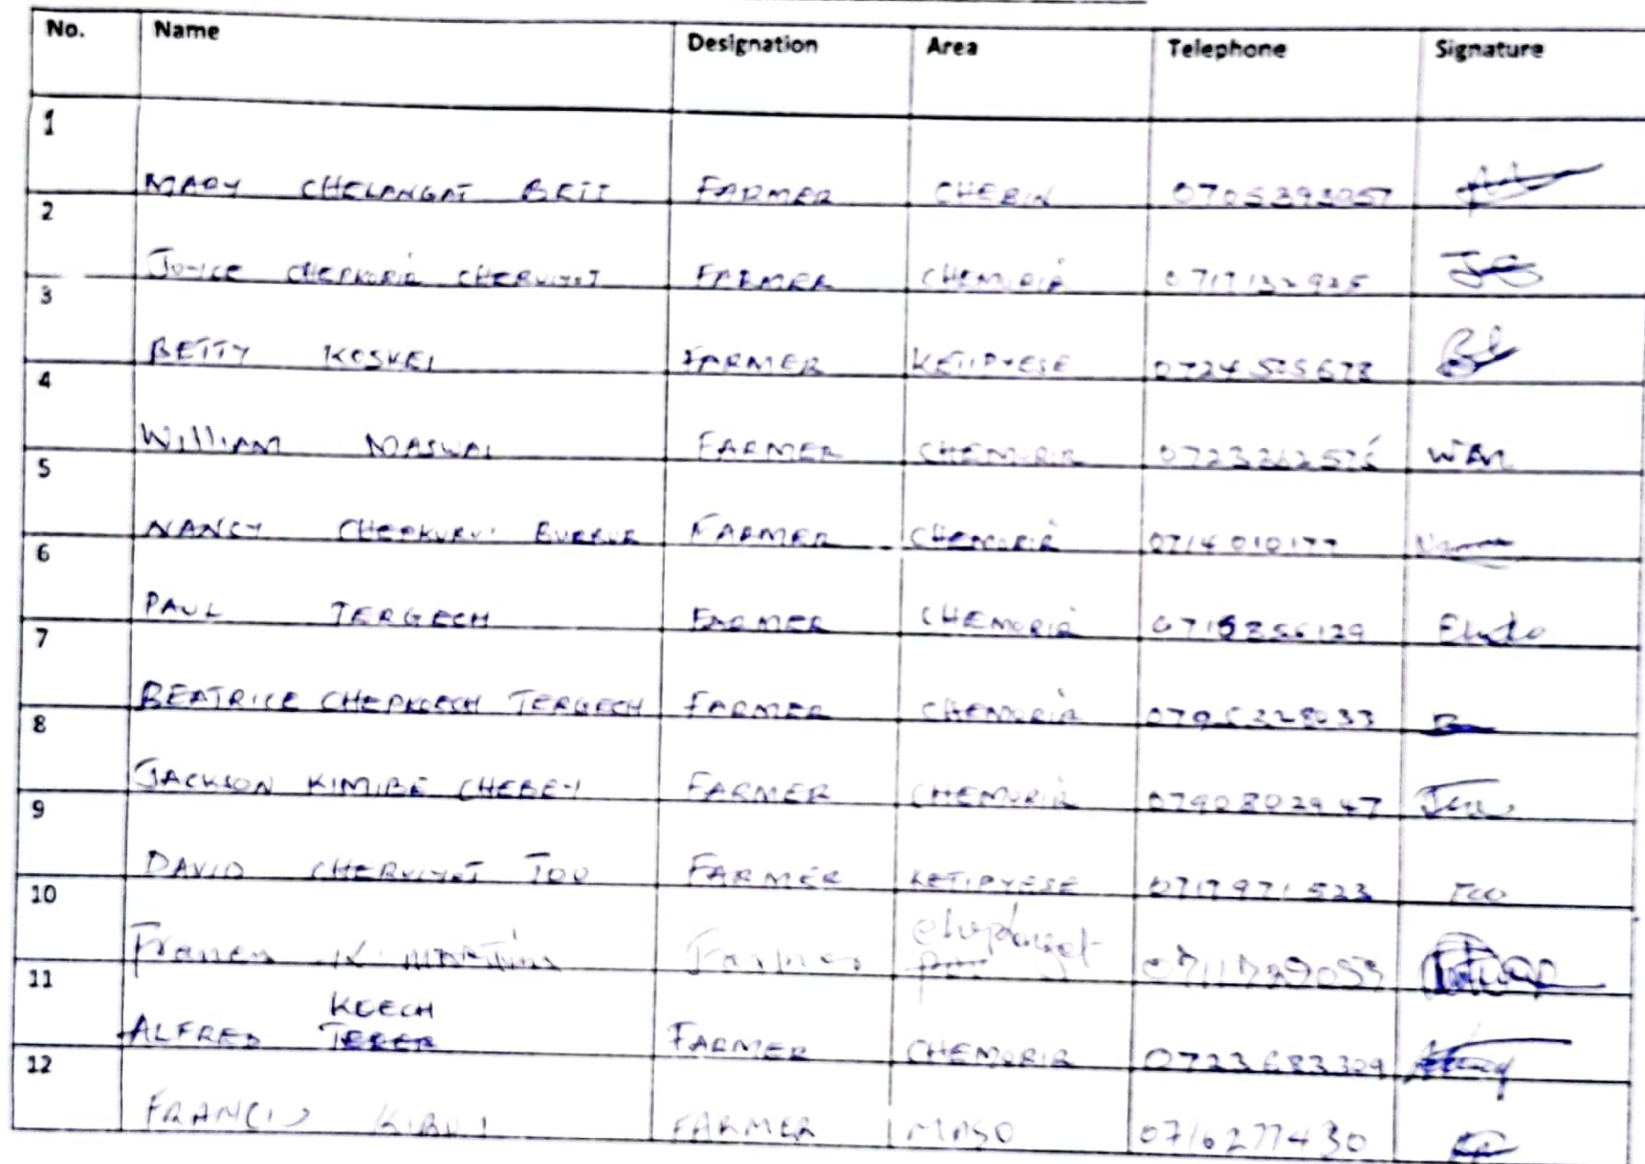 No. Name Designation Area Telephone Signature
1 MARY CHELANGAT BETT FARMER CHEBIN
2 JOYCE CHEPKORIR CHERUIYOT FARMER CHEMORIR
3 BETTY KOSKEI FARMER KETIPYESE
4 WILLIAM MASWAI FARMER CHEMORIR
5 NANCY CHEPKURUI FARMER CHEMORIR 0714010177
6 PAUL TERGECH FARMER CHEMORIR
7 BEATRICE CHEPKOECH TERGECH FARMER CHEMORIR
8 JACKSON KIMIBE CHEBEY FARMER CHEMORIR 0790802947
9 DAVID CHERUIYOT TOO FARMER KETIPYESE 0717971523 TOO
10 Farmer 0711739053
11 ALFRED KOECH FARMER CHEMORIR 0723683309
12 FRANCIS KIRUI FARMER MASO 0716277430